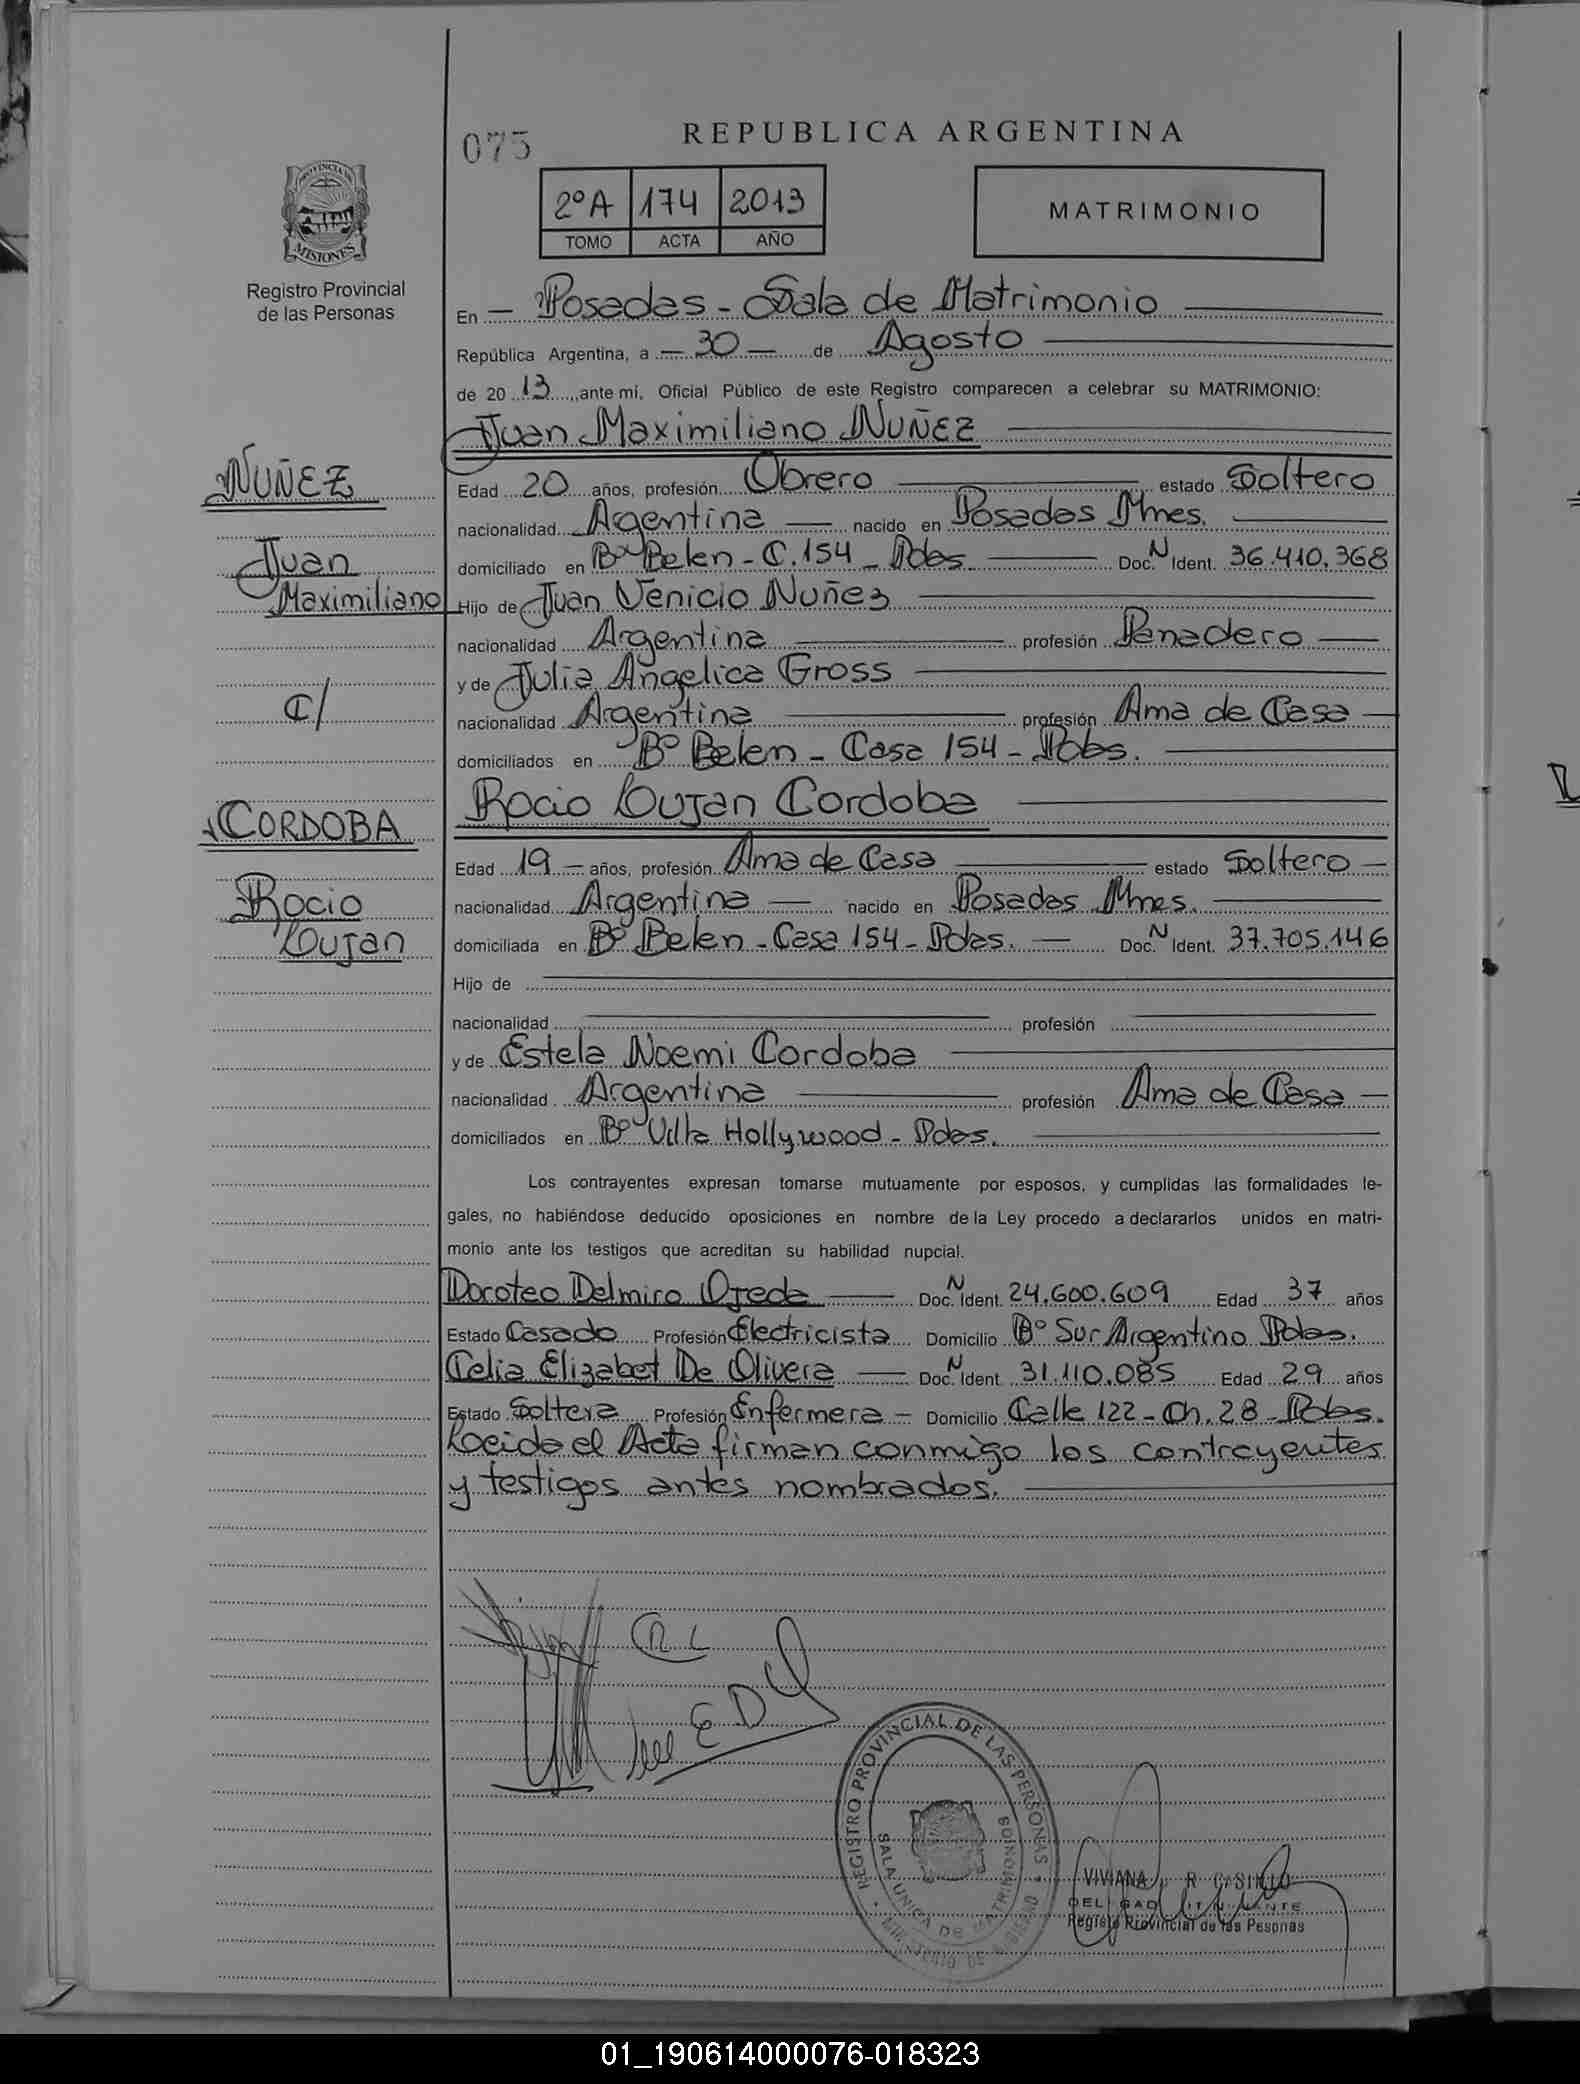 075
REPUBLICA ARGENTINA
2ºA 174 2013
TOMO ACTA AÑO
MATRIMONIO
PROVINCIA DE
MISIONES
Registro Provincial
de las Personas
En Posadas - Sala de Matrimonio
República Argentina, a 30 de Agosto
de 20 13 ante mi, Oficial Público de este Registro comparecen a celebrar su MATRIMONIO:
Juan Maximiliano NUÑEZ
NUÑEZ
Juan
Maximiliano
C/
CORDOBA
Rocio
Lujan
Edad 20 años, profesión Obrero estado Soltero
nacionalidad Argentina nacido en Posadas Mnes.
domiciliado en Bº Belen - C. 154 - Pdas Doc. N Ident. 36.410.368
Hijo de Juan Venicio Nuñez
nacionalidad Argentina profesión Panadero
y de Julia Angelica Gross
nacionalidad Argentina profesión Ama de Casa
domiciliados en Bº Belen - Casa 154 - Pdas.
Rocio Lujan Cordoba
Edad 19 años, profesión Ama de Casa estado Soltero
nacionalidad Argentina nacido en Posadas Mnes.
domiciliada en Bº Belen - Casa 154 - Pdas. Doc. N Ident. 37.705.146
Hijo de
nacionalidad profesión
y de Estela Noemi Cordoba
nacionalidad Argentina profesión Ama de Casa
domiciliados en Bº Villa Hollywood - Pdas.
Los contrayentes expresan tomarse mutuamente por esposos, y cumplidas las formalidades le-
gales, no habiéndose deducido oposiciones en nombre de la Ley procedo a declararlos unidos en matri-
monio ante los testigos que acreditan su habilidad nupcial.
Doroteo Delmiro Ojeda Doc. N Ident. 24.600.609 Edad 37 años
Estado Casado Profesión Electricista Domicilio Bº Sur Argentino Pdas.
Celia Elizabet De Olivera Doc. N Ident. 31.110.085 Edad 29 años
Estado Soltera Profesión Enfermera - Domicilio Calle 122 - Ch. 28 - Pdas.
Leeida el Acta firman conmigo los contrayentes
y testigos antes nombrados.
REGISTRO PROVINCIAL DE LAS PERSONAS
SALA UNICA DE MATRIMONIOS
MINISTERIO DE GOBIERNO
VIVIANA R. CASTILLO
Registro Provincial de las Pesonas
01_190614000076-018323